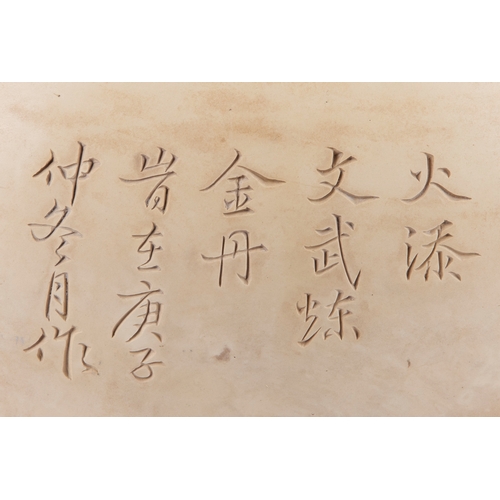 火添
文武炼
金丹
旹在庚子
仲冬月作